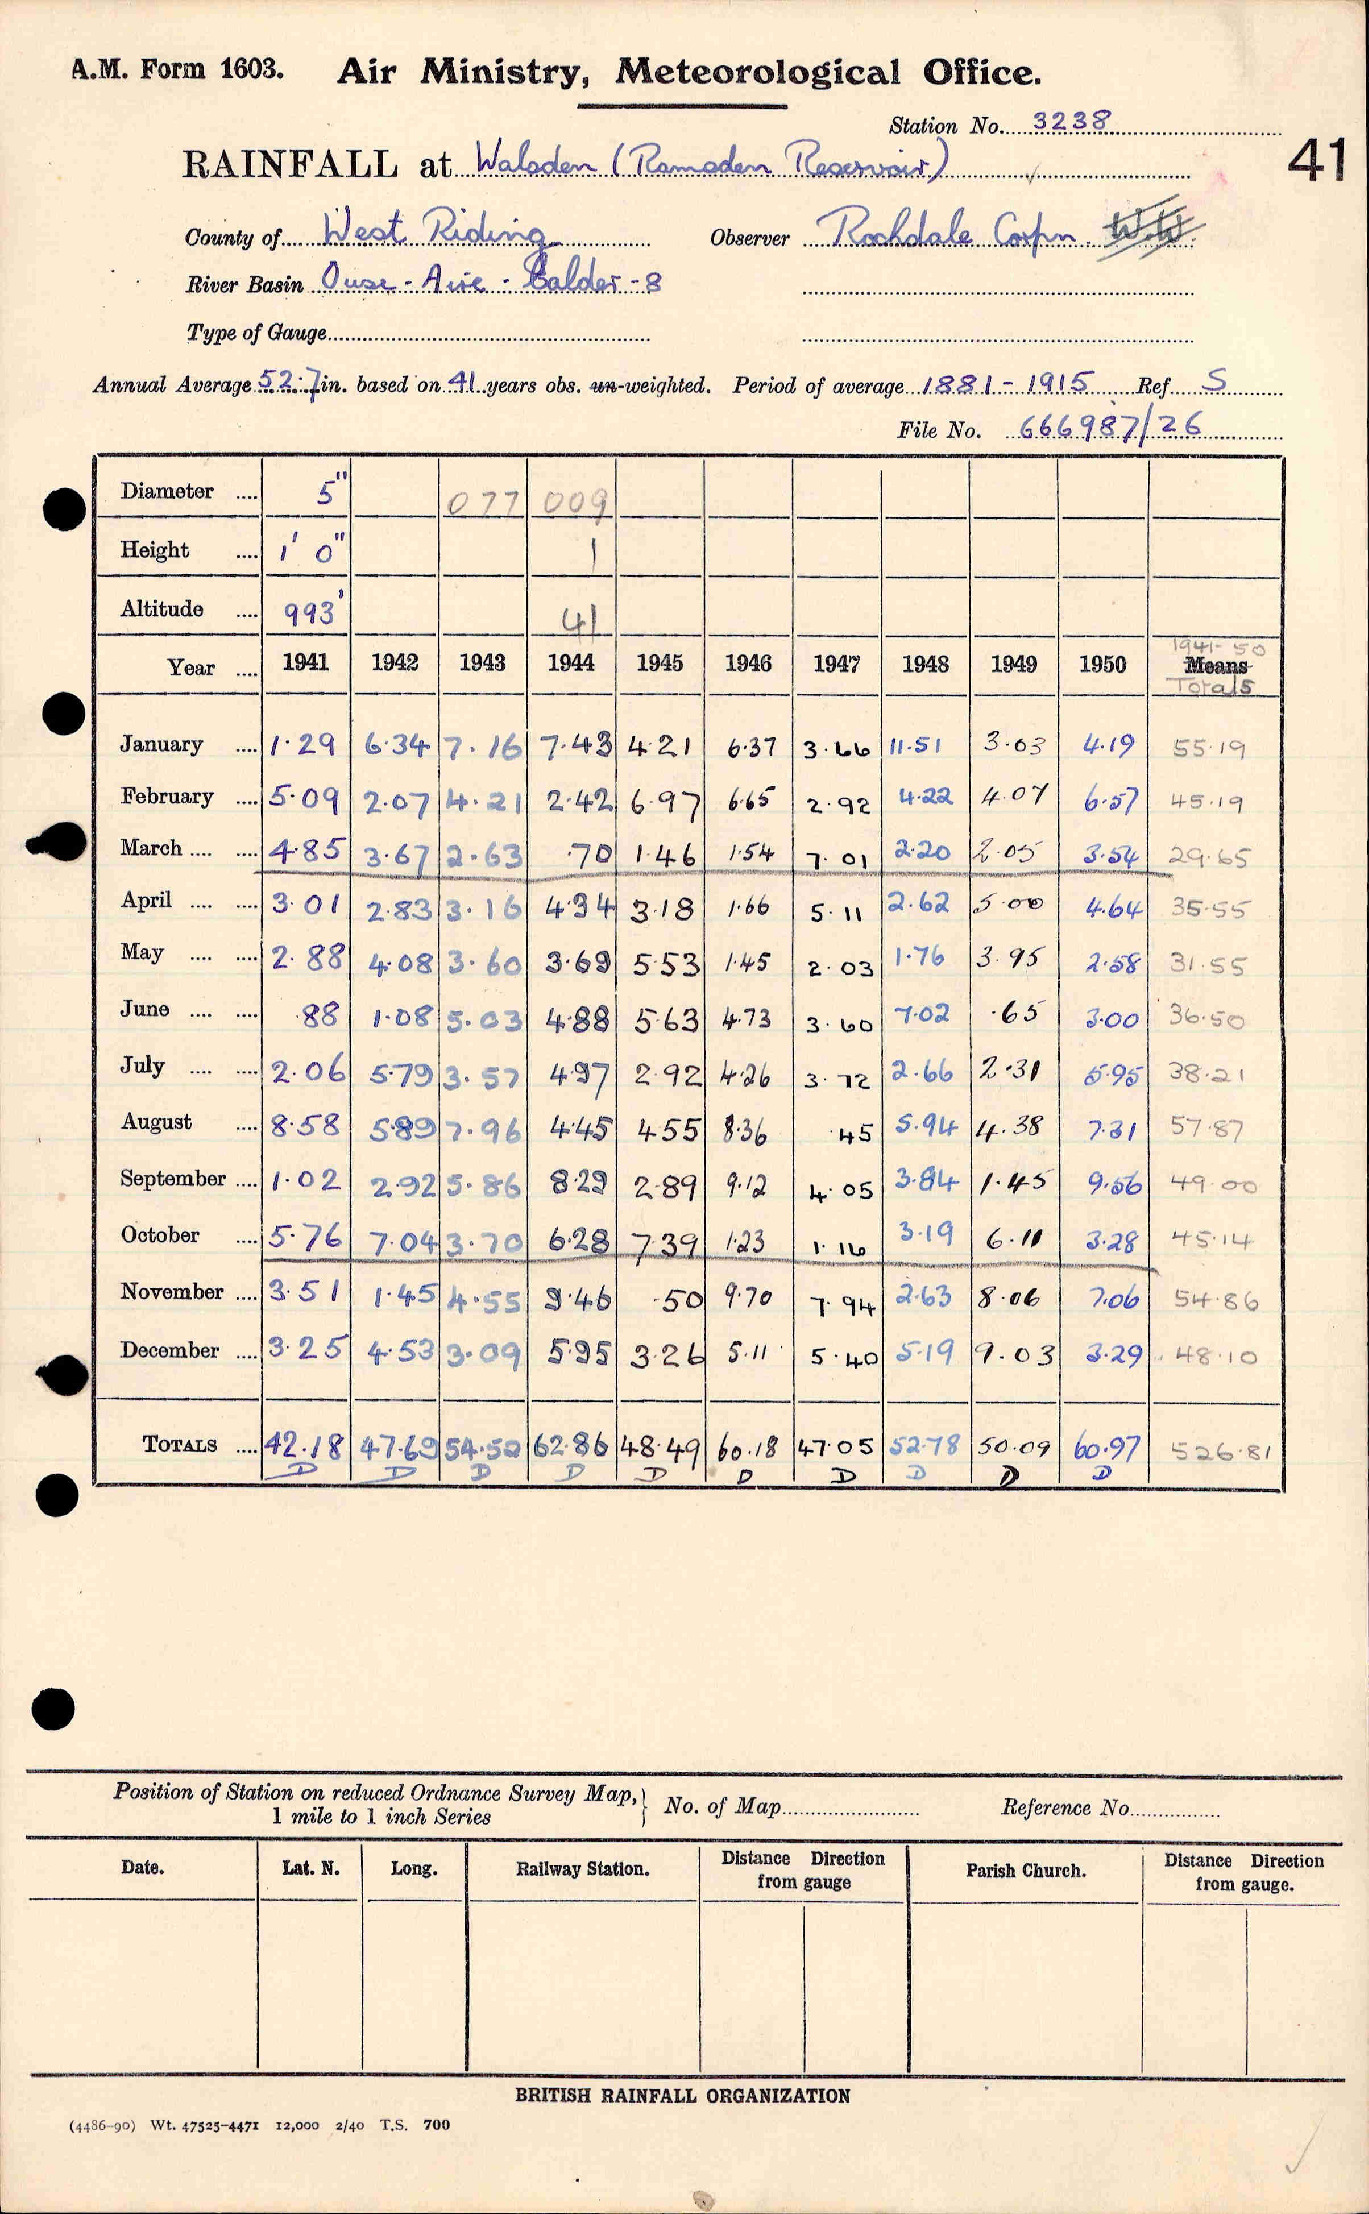 A.M. Form 1603. Air Ministry, Meteorological Office.
Station No. 3238
41
RAINFALL at Walsden (Ramsden Reservoir)
County of West Riding Observer Rochdale Corpn. W.W.
River Basin Ouse - Aire - Calder - 8
Type of Gauge
Annual Average 52.7 in. based on 41 years obs. un-weighted. Period of average 1881 - 1915 Ref S
File No. 666987/26
Diameter .... 5" 077 009
Height .... 1' 0" 1
Altitude .... 993' 41
1941-50
Year .... 1941 1942 1943 1944 1945 1946 1947 1948 1949 1950 Means
Totals
January .... 1.29 6.34 7.16 7.43 4.21 6.37 3.66 11.51 3.03 4.19 55.19
February .... 5.09 2.07 4.21 2.42 6.97 6.65 2.92 4.22 4.07 6.57 45.19
March .... .... 4.85 3.67 2.63 .70 1.46 1.54 7.01 2.20 2.05 3.54 29.65
April .... .... 3.01 2.83 3.16 4.34 3.18 1.66 5.11 2.62 5.00 4.64 35.55
May .... .... 2.88 4.08 3.60 3.69 5.53 1.45 2.03 1.76 3.95 2.58 31.55
June .... .... .88 1.08 5.03 4.88 5.63 4.73 3.60 7.02 .65 3.00 36.50
July .... .... 2.06 5.79 3.57 4.97 2.92 4.26 3.72 2.66 2.31 5.95 38.21
August .... 8.58 5.89 7.96 4.45 4.55 8.36 .45 5.94 4.38 7.31 57.87
September .... 1.02 2.92 5.86 8.29 2.89 9.12 4.05 3.84 1.45 9.56 49.00
October .... 5.76 7.04 3.70 6.28 7.39 1.23 1.16 3.19 6.11 3.28 45.14
November .... 3.51 1.45 4.55 9.46 .50 9.70 7.94 2.63 8.06 7.06 54.86
December .... 3.25 4.53 3.09 5.95 3.26 5.11 5.40 5.19 9.03 3.29 48.10
TOTALS .... 42.18 47.69 54.52 62.86 48.49 60.18 47.05 52.78 50.09 60.97 526.81
D D D D D D D D D D
Position of Station on reduced Ordnance Survey Map,
1 mile to 1 inch Series
No. of Map Reference No.
Date. Lat. N. Long. Railway Station. Distance Direction from gauge Parish Church. Distance Direction from gauge.
BRITISH RAINFALL ORGANIZATION
(4486-90) Wt. 47525-4471 12,000 2/40 T.S. 700